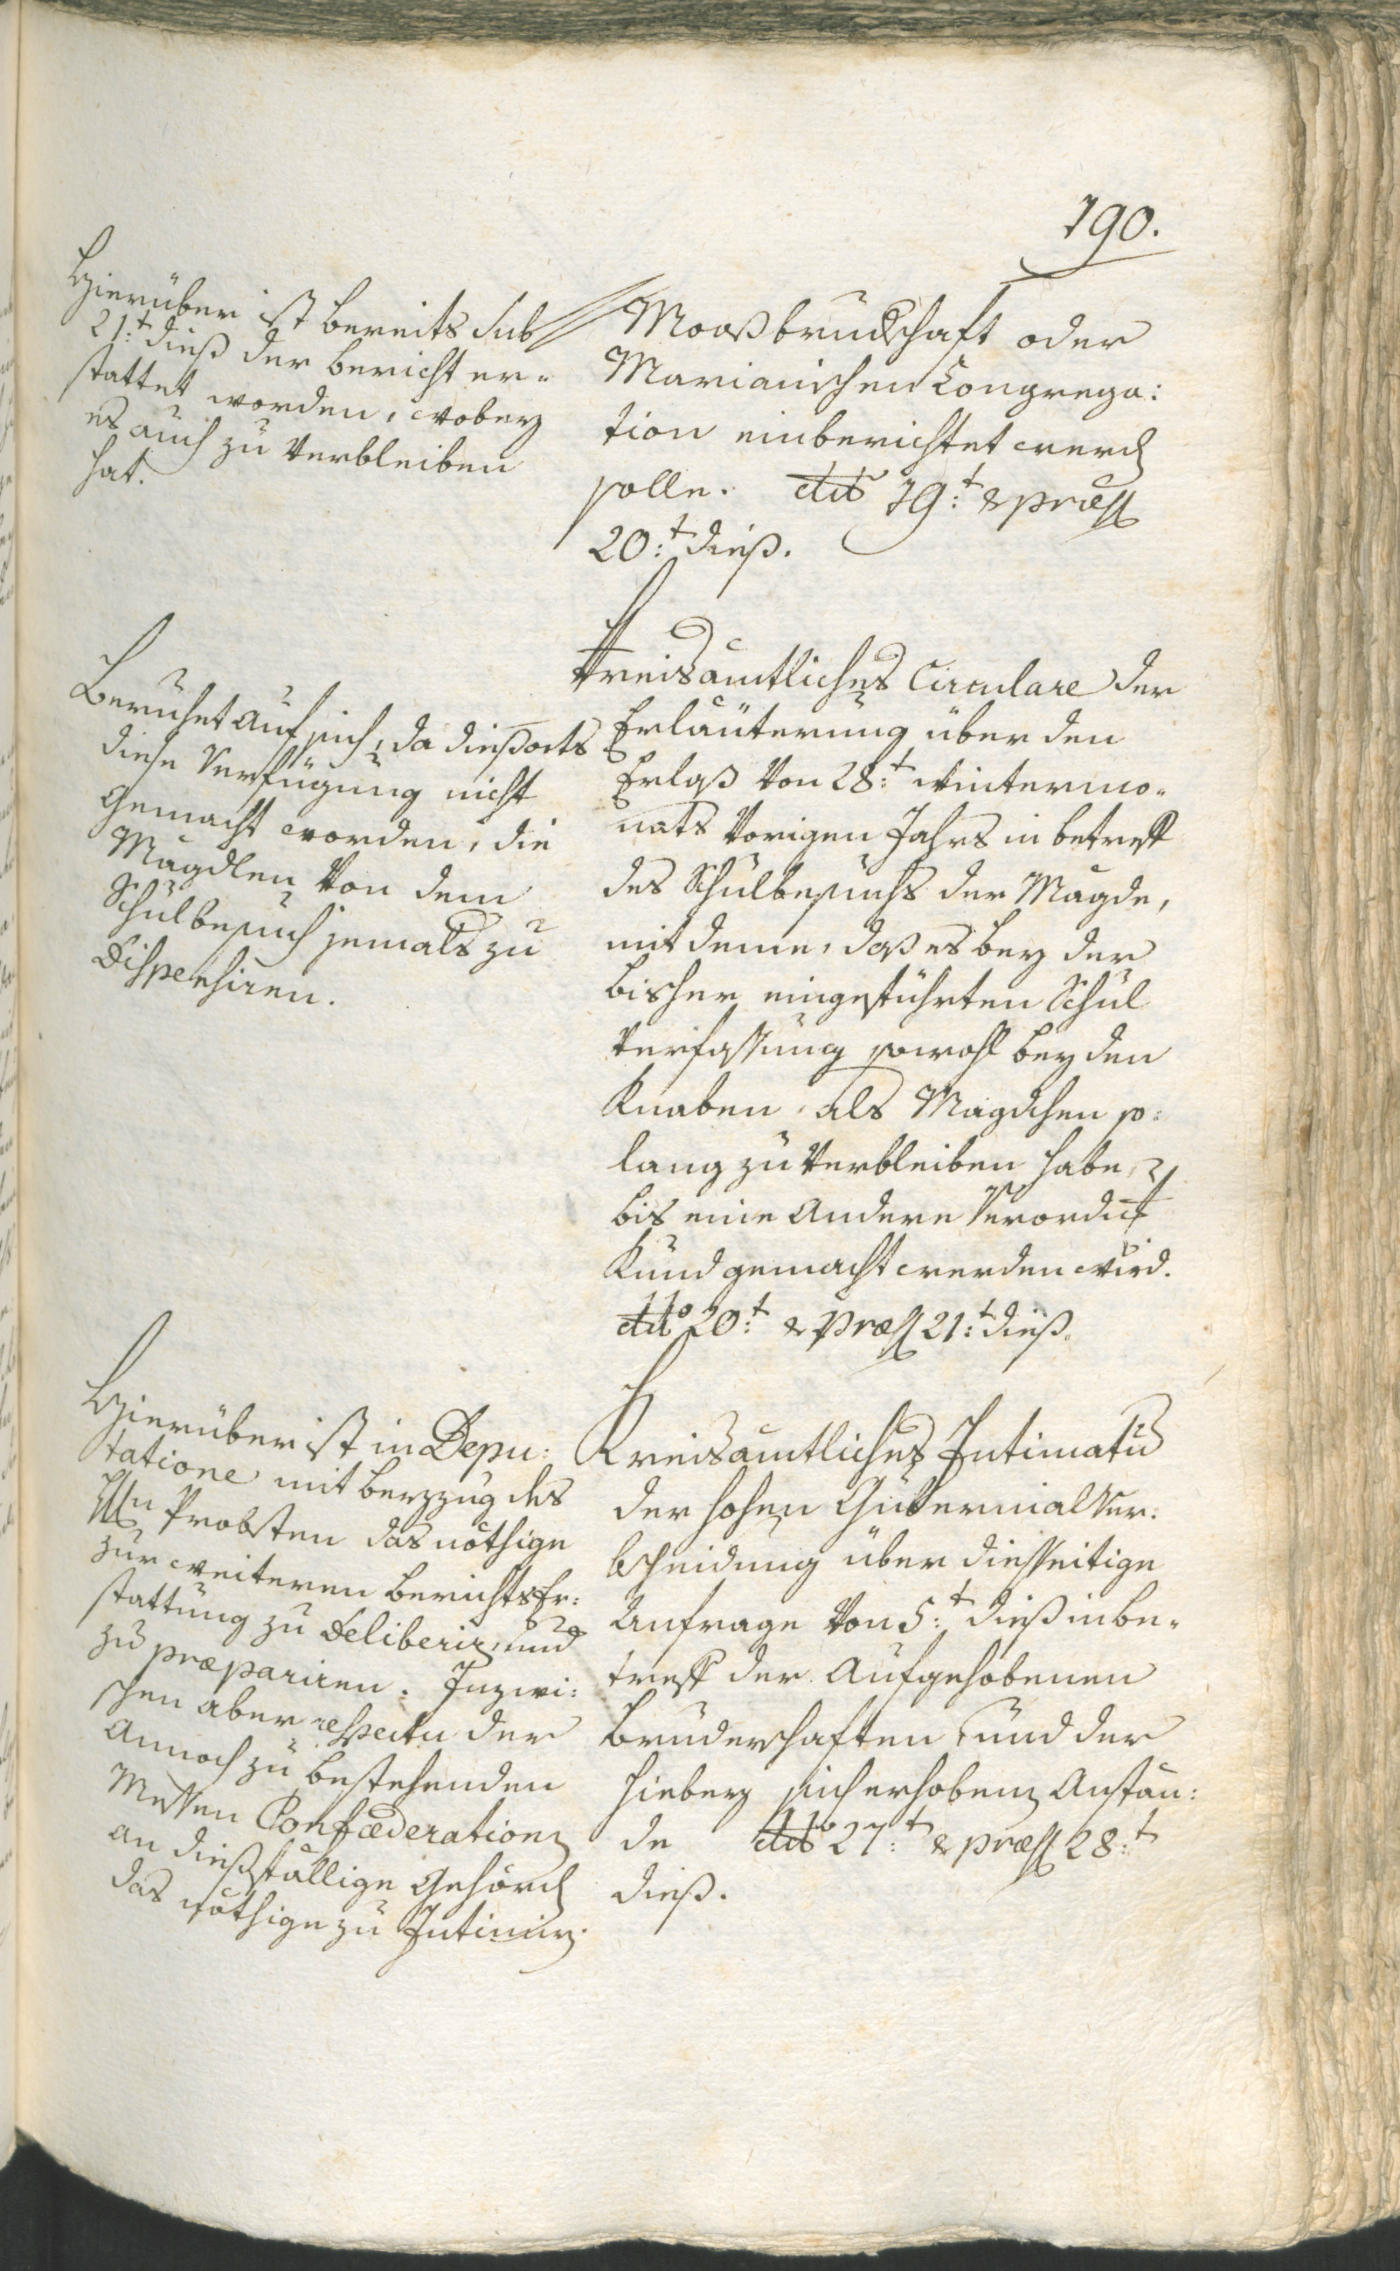 190.
Hierüber ist bereits sub
21:t dieß der bericht er=
stattet worden, wobey
es auch zu verbleiben
hat.
Mooßbrudschaft oder
Marianischen Congrega:
tion einberichtet werd
solle. dto 19:t & præs
20:t dieß.
Beruhet auf sich, da dießorts
diese Verfügung nicht
gemacht worden, die
Mägdlen von dem
Schulbesuch jemals zu
Dispensiren.
Kreisämtliches Circulare der
Erläuterung über den
Erlaß von 28:t Wintermo=
nats vorigen Jahrs in betreff
des Schulbesuchs der Mägde,
mit deme, daß es bey der
bisher eingeführten Schul
Verfassung sowohl bey den
Knaben als Mägdchen so=
lang zu verbleiben habe,
bis eine andere Verordn
kund gemacht werden wird.
dto 20:t & Præs 21:t dieß.
Hierüber ist in Depu:
tatione mit beyzug des
Hn Probsten das nöthige
zur weiteren berichts Er:
stattung zu Deliberir und
zu præpariren. Inzwi:
schen aber respectu der
annoch zu bestehenden
Messen Confœderation
an dießfällige Gehörd
das nöthige zu Intimir.
Kreisämtliches Intimatum
der hohen Gubernial Ver:
bscheidung über diesseitige
Anfrage von 5:t dieß in be=
treff der aufgehobenen
Bruderschaften und der
hiebey sich erhobenen Anstän:
de dto 27:t & præs 28:t
dieß.